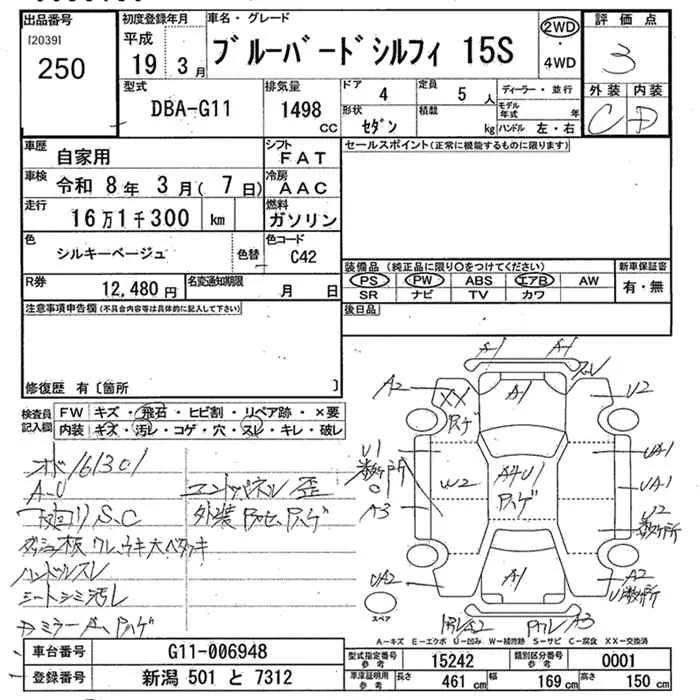 出品番号
[2039]
250
初度登録年月
平成
19 3月
車名・グレード
ブルーバードシルフィ 15S
2WD
・
4WD
評価点
3
外装 内装
C D
型式
DBA-G11
排気量
1498 cc
ドア
4
定員
5 人
形状
セダン
積載
kg
ディーラー・並行
モデル年式 年
ハンドル 左・右
車歴
自家用
シフト
FAT
車検
令和 8年 3月( 7日)
冷房
AAC
走行
16万1千300 km
燃料
ガソリン
色
シルキーベージュ
色替
色コード
C42
R券
12,480 円
名変通知期限
月 日
セールスポイント(正常に機能するものに限ります)
装備品 (純正品に限り○をつけてください)
PS PW ABS エアB AW
SR ナビ TV カワ
新車保証書
有・無
後日品
注意事項申告欄(不具合内容等は具体的に記入して下さい)
修復歴 有〔箇所 〕
検査員記入欄
FW キズ・飛石・ヒビ割・リペア跡・×要
内装 キズ・汚レ・コゲ・穴・スレ・キレ・破レ
オド 161301
A-U
下廻り S.C
コアサポートパネル 歪
ハンドルスレ
シートシミ汚レ
A-1
A-1
A2
XX
A-1
U2
U1
数ヶ所
A3
W2
A4U1
UA1
UA1
U2
数ヶ所
UA2
A-1
A2
U数ヶ所
A3
スペア
A-キズ E-エクボ U-凹み W-補修跡 S-サビ C-腐食 XX-交換済
車台番号
G11-006948
登録番号
新潟 501 と 7312
型式指定番号
参考
15242
類別区分番号
参考
0001
車庫証明用
参考
長さ
461 cm
幅
169 cm
高さ
150 cm